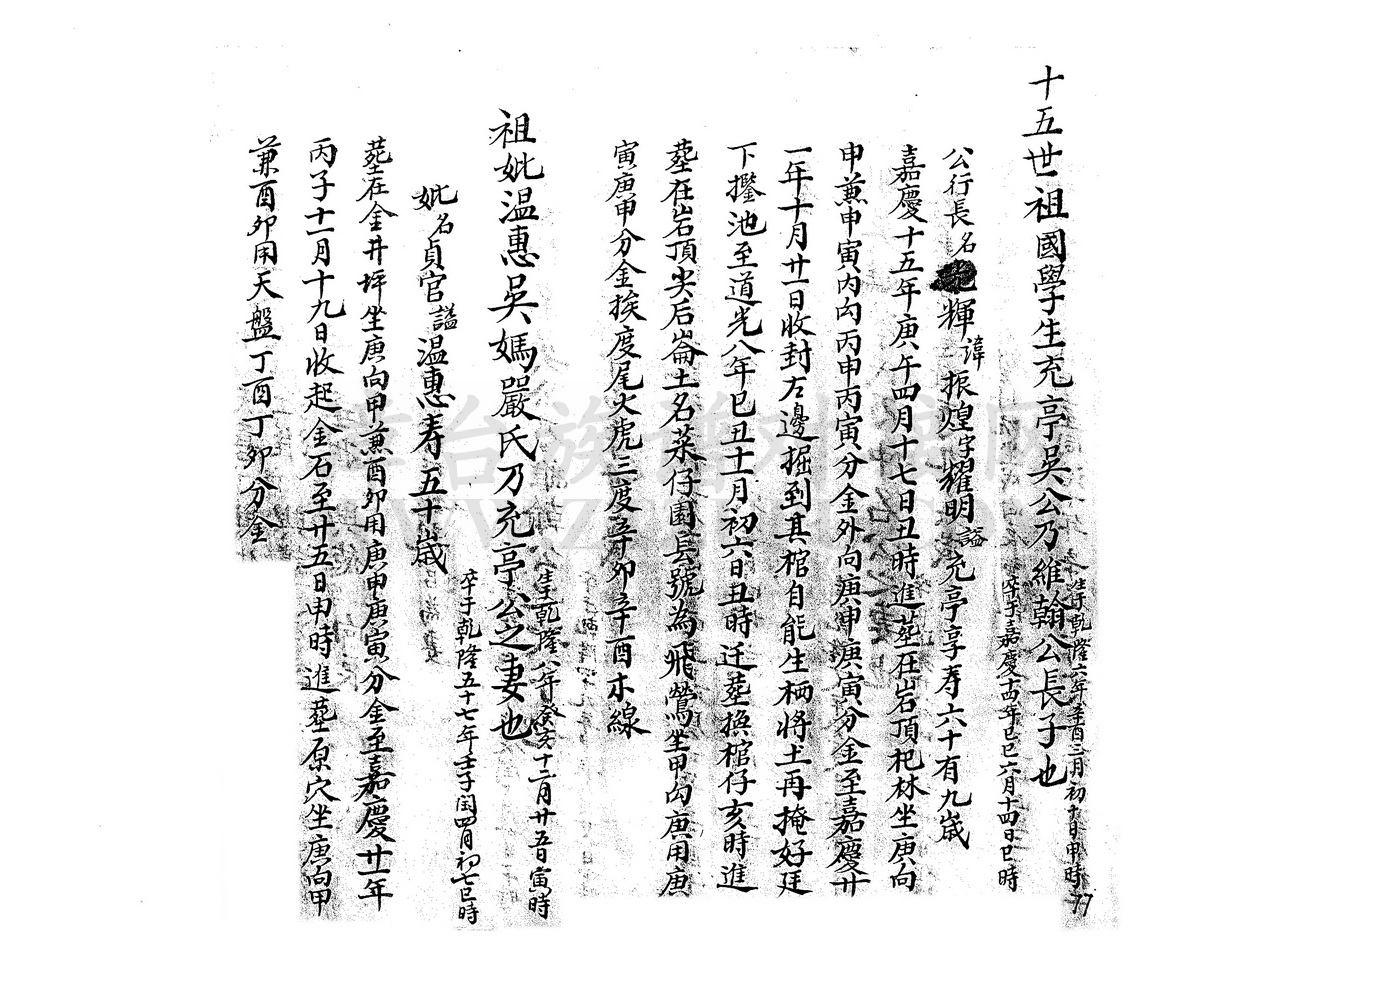 十五世祖國學生充亭吳公乃維翰公長子也
生于乾隆六年辛酉三月初十日申時
卒于嘉慶十四年己巳六月十四日巳時
公行長名輝諱振煌字耀明諡充亭享寿六十有九歲
嘉慶十五年庚午四月十七日丑時進塟在岩頂杷林坐庚向
申兼申寅内向丙申丙寅分金外向庚申庚寅分金至嘉慶廿
一年十月廿一日收封左邊掘到其棺自能生栖将土再掩好廷
下擡池至道光八年己丑十一月初六日丑時迁塟换棺仔亥時進
塟在岩頂尖后崙土名菜仔園長號為飛鶯坐甲向庚用庚
寅庚申分金挨度尾火虎三度辛卯辛酉木線
祖妣温惠吳媽嚴氏乃充亭公之妻也
生乾隆八年癸亥十二月廿五日寅時
卒于乾隆五十七年壬子閏四月初七巳時
妣名貞官諡温惠寿五十歲
塟在金井坪坐庚向甲兼酉卯用庚申庚寅分金至嘉慶廿一年
丙子十一月十九日收起金石至廿五日申時進塟原穴坐庚向甲
兼酉卯用天盤丁酉丁卯分金
77